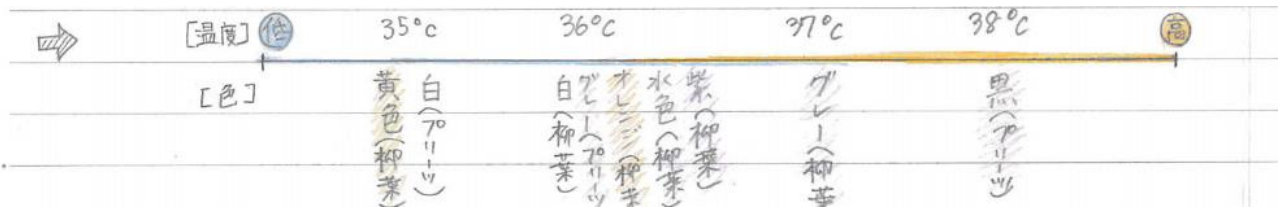 [温度] 低 35°C 36°C 37°C 38°C 高
[色]
黄色(柳葉)
白(プリーツ)
白(柳葉)
グレー(プリーツ
オレンジ(柳葉
水色(柳葉)
紫(柳葉)
グレー(柳葉
黒(プリーツ)